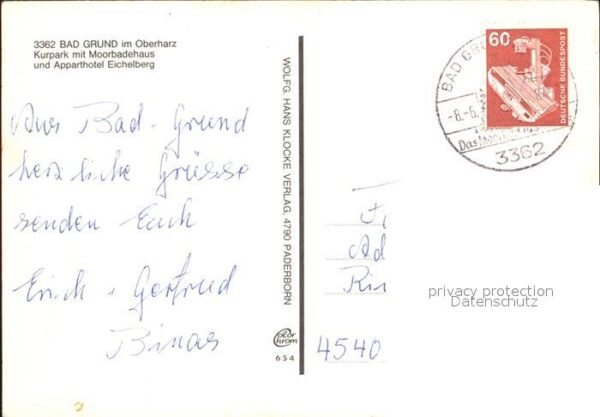 3362 BAD GRUND im Oberharz
Kurpark mit Moorbadehaus
und Apparthotel Eichelberg
Aus Bad-Grund
herzliche Grüsse
senden Euch
Erich + Gertrud
Binas
WOLFG. HANS KLOCKE VERLAG, 4790 PADERBORN
Chrom
654
60
DEUTSCHE BUNDESPOST
BAD GRU
-8.-6.
3362
Ad
Rin
4540
privacy protection
Datenschutz